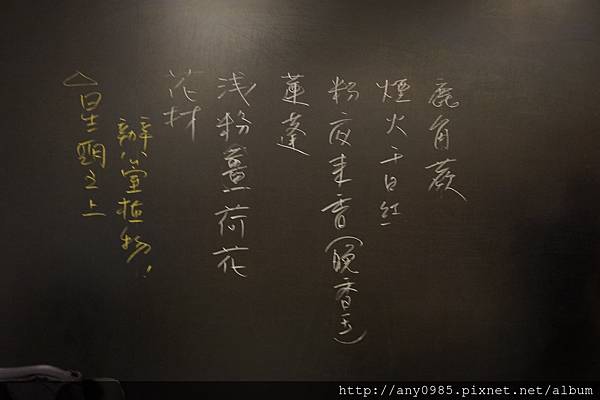 鹿角蕨
煙火千日紅
粉夜来香(晚香玉)
蓮蓬
浅粉薑荷花
花材
辦公室植物!
之上
http://any0985.pixnet.net/album